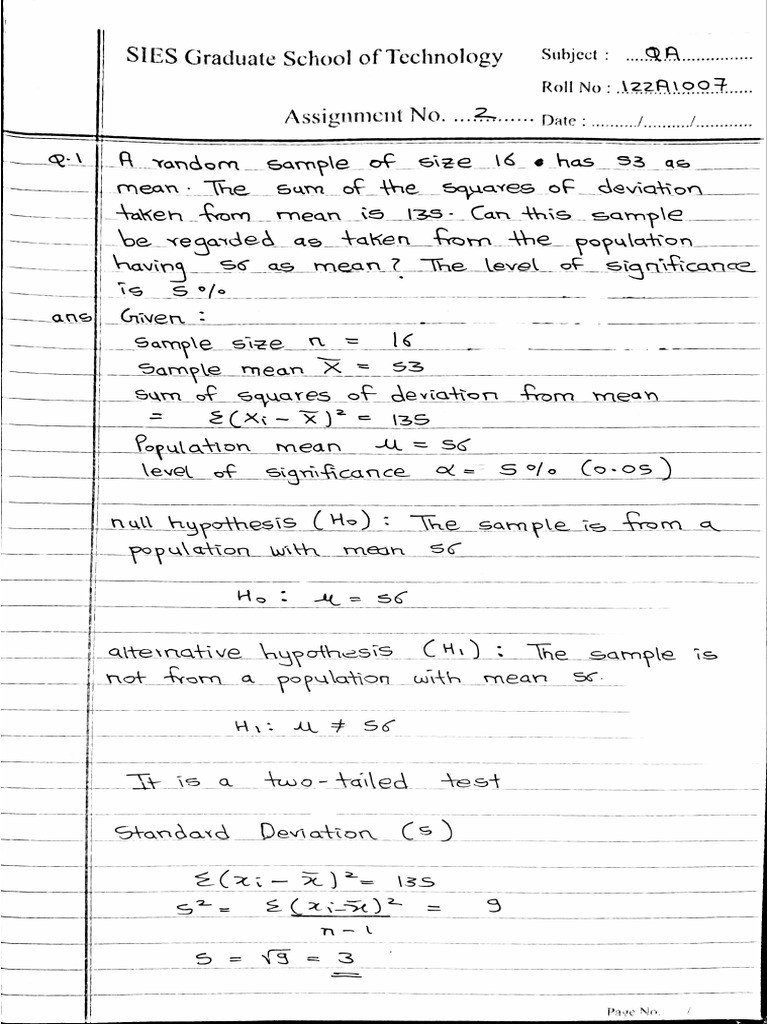 SIES Graduate School of Technology
Subject : ....QA...............
Roll No : .122A1007.....
Assignment No. ...2.......
Date : ........../........../............
Q-1 A random sample of size 16 has 53 as
mean. The sum of the squares of deviation
taken from mean is 135. Can this sample
be regarded as taken from the population
having 56 as mean? The level of significance
is 5%
ans Given :
Sample size n = 16
Sample mean X̅ = 53
sum of squares of deviation from mean
= Σ(Xi - X̅)² = 135
Population mean μ = 56
level of significance α = 5% (0.05)
null hypothesis (H₀) : The sample is from a
population with mean 56
H₀ : μ = 56
alternative hypothesis (H₁) : The sample is
not from a population with mean 56.
H₁ : μ ≠ 56
It is a two-tailed test
Standard Deviation (s)
Σ(xi - x̅)² = 135
S² = Σ(xi-x̅)² = 9
n-1
S = √9 = 3
Page No. /